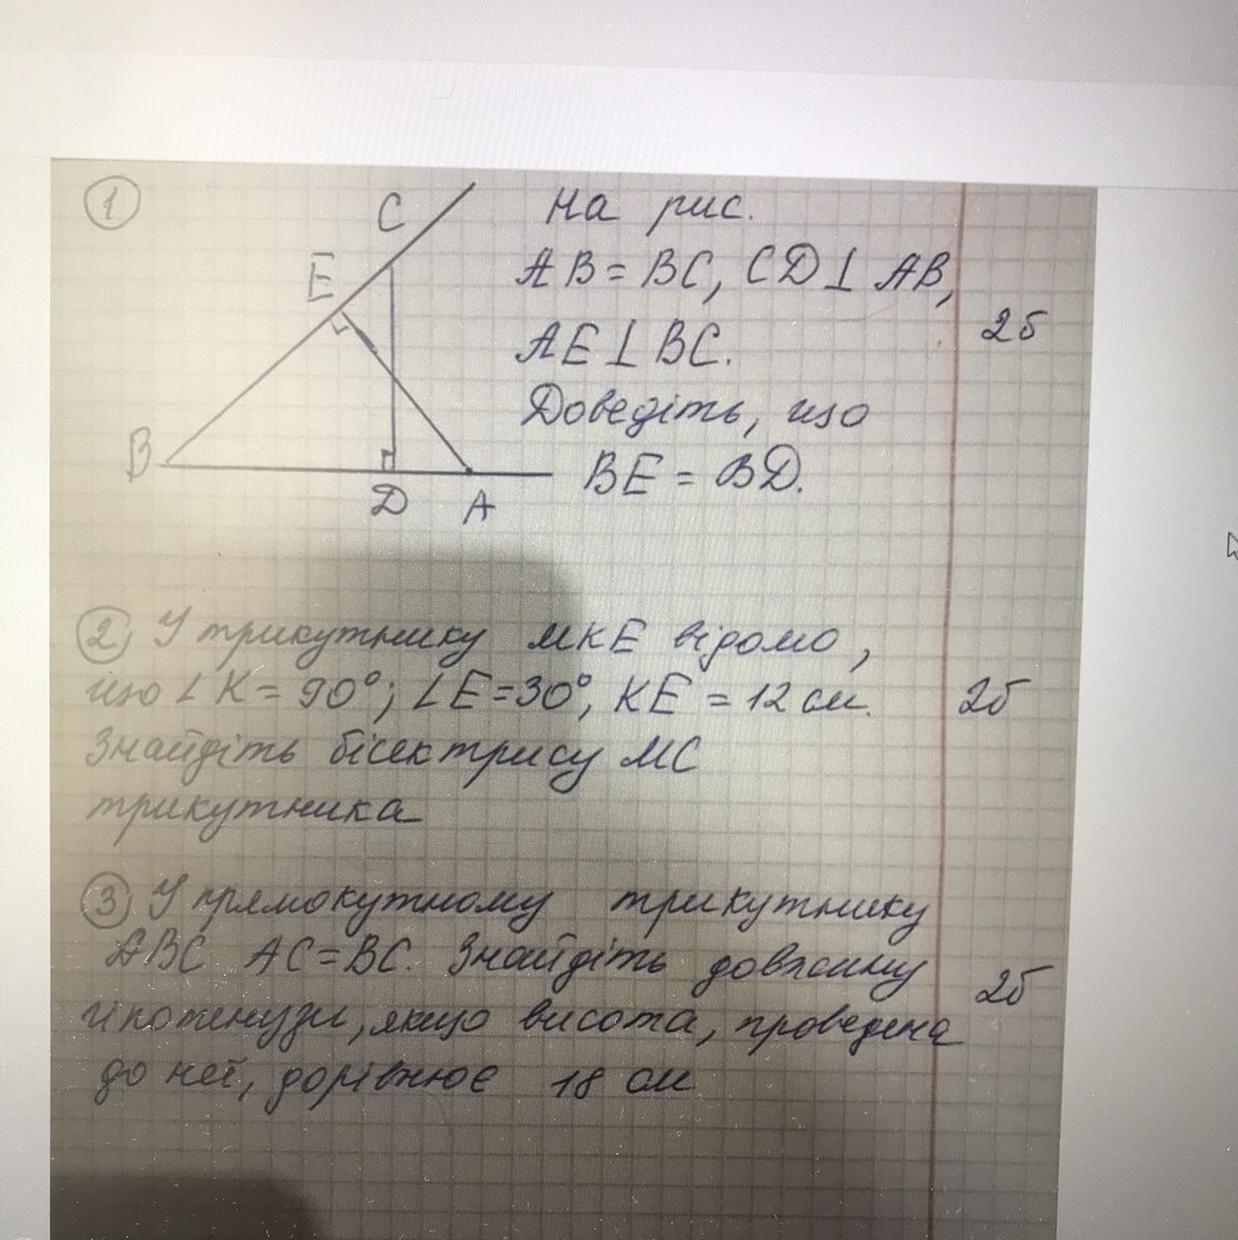 1
C
E
B
D
A
На рис.
AB = BC, CD ⊥ AB,
AE ⊥ BC.
2б
Доведіть, що
BE = BD.
2 У трикутнику MKE відомо,
що ∠K = 90°; ∠E = 30°, KE = 12 см. 2б
Знайдіть бісектрису MC
трикутника
3 У прямокутному трикутнику
ABC AC = BC. Знайдіть довжину 2б
гіпотенузи, якщо висота, проведена
до неї, дорівнює 18 см